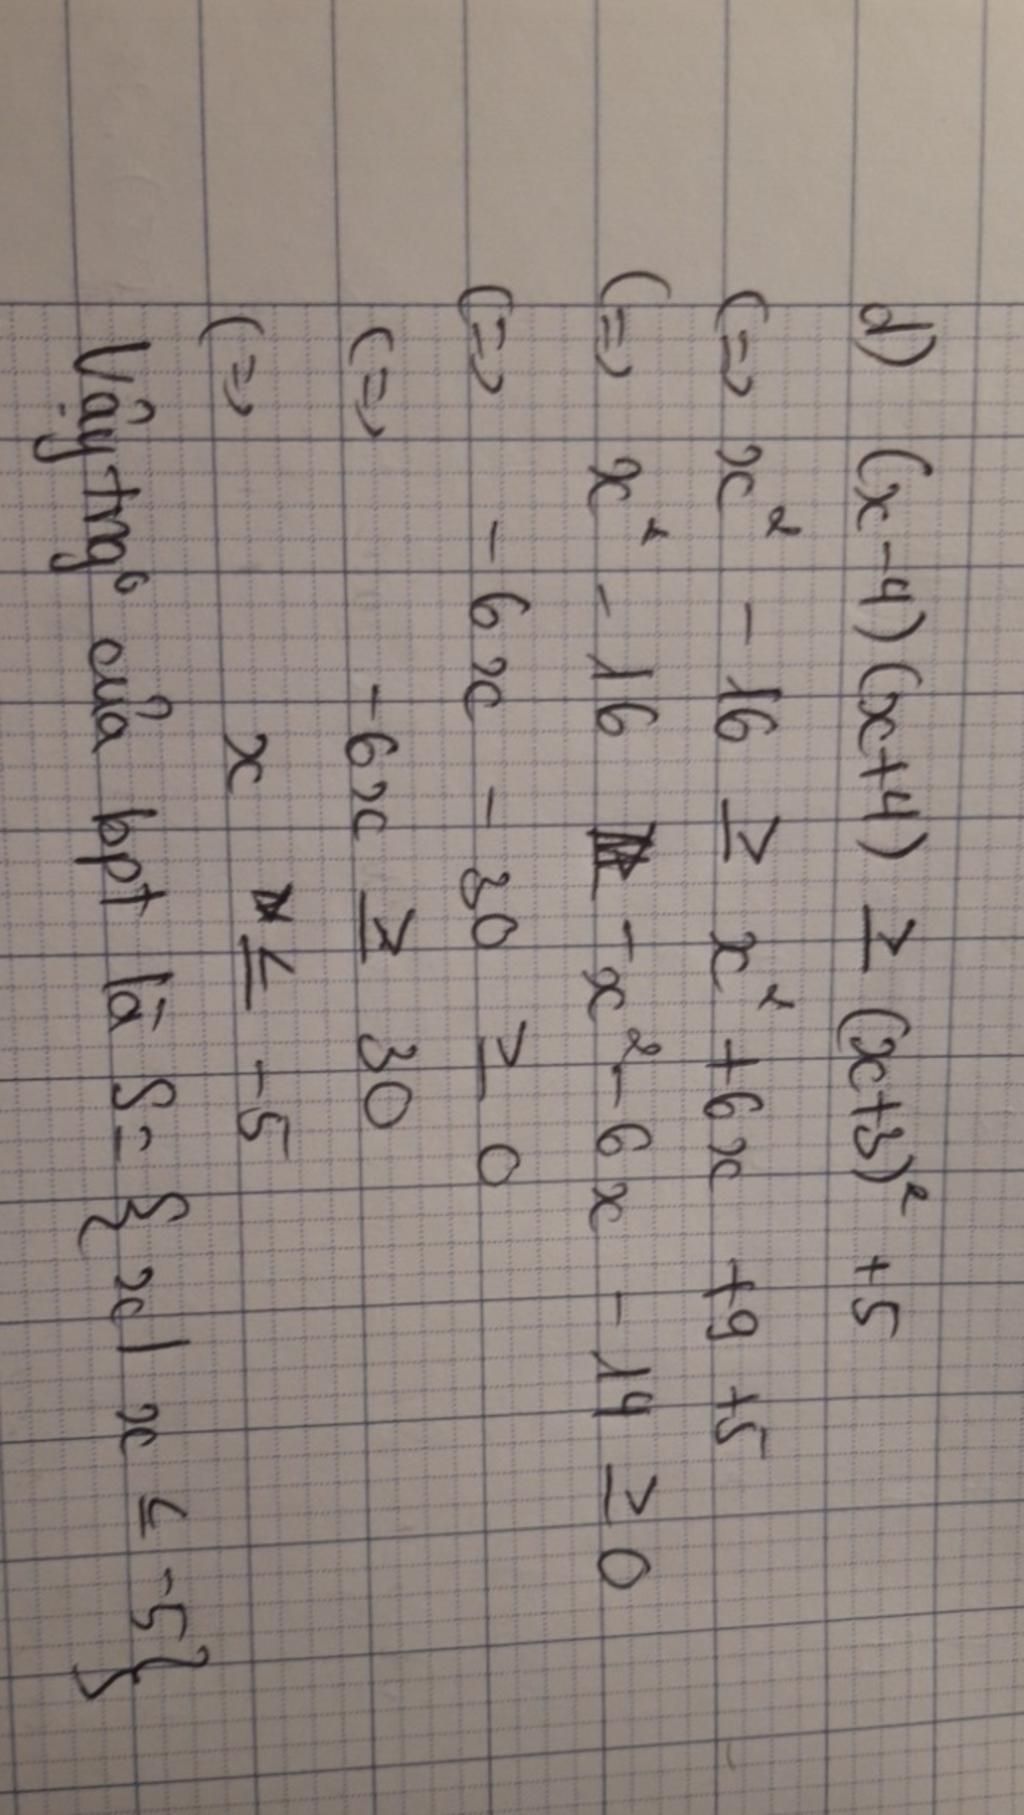 d) (x-4)(x+4) ≥ (x+3)² +5
(=> x² - 16 ≥ x² +6x +9 +5
(=> x² - 16 -x² -6x - 14 ≥ 0
(=> -6x - 30 ≥ 0
(=> -6x ≥ 30
(=> x ≤ -5
Vậy tng° của bpt là S = { x | x ≤ -5}